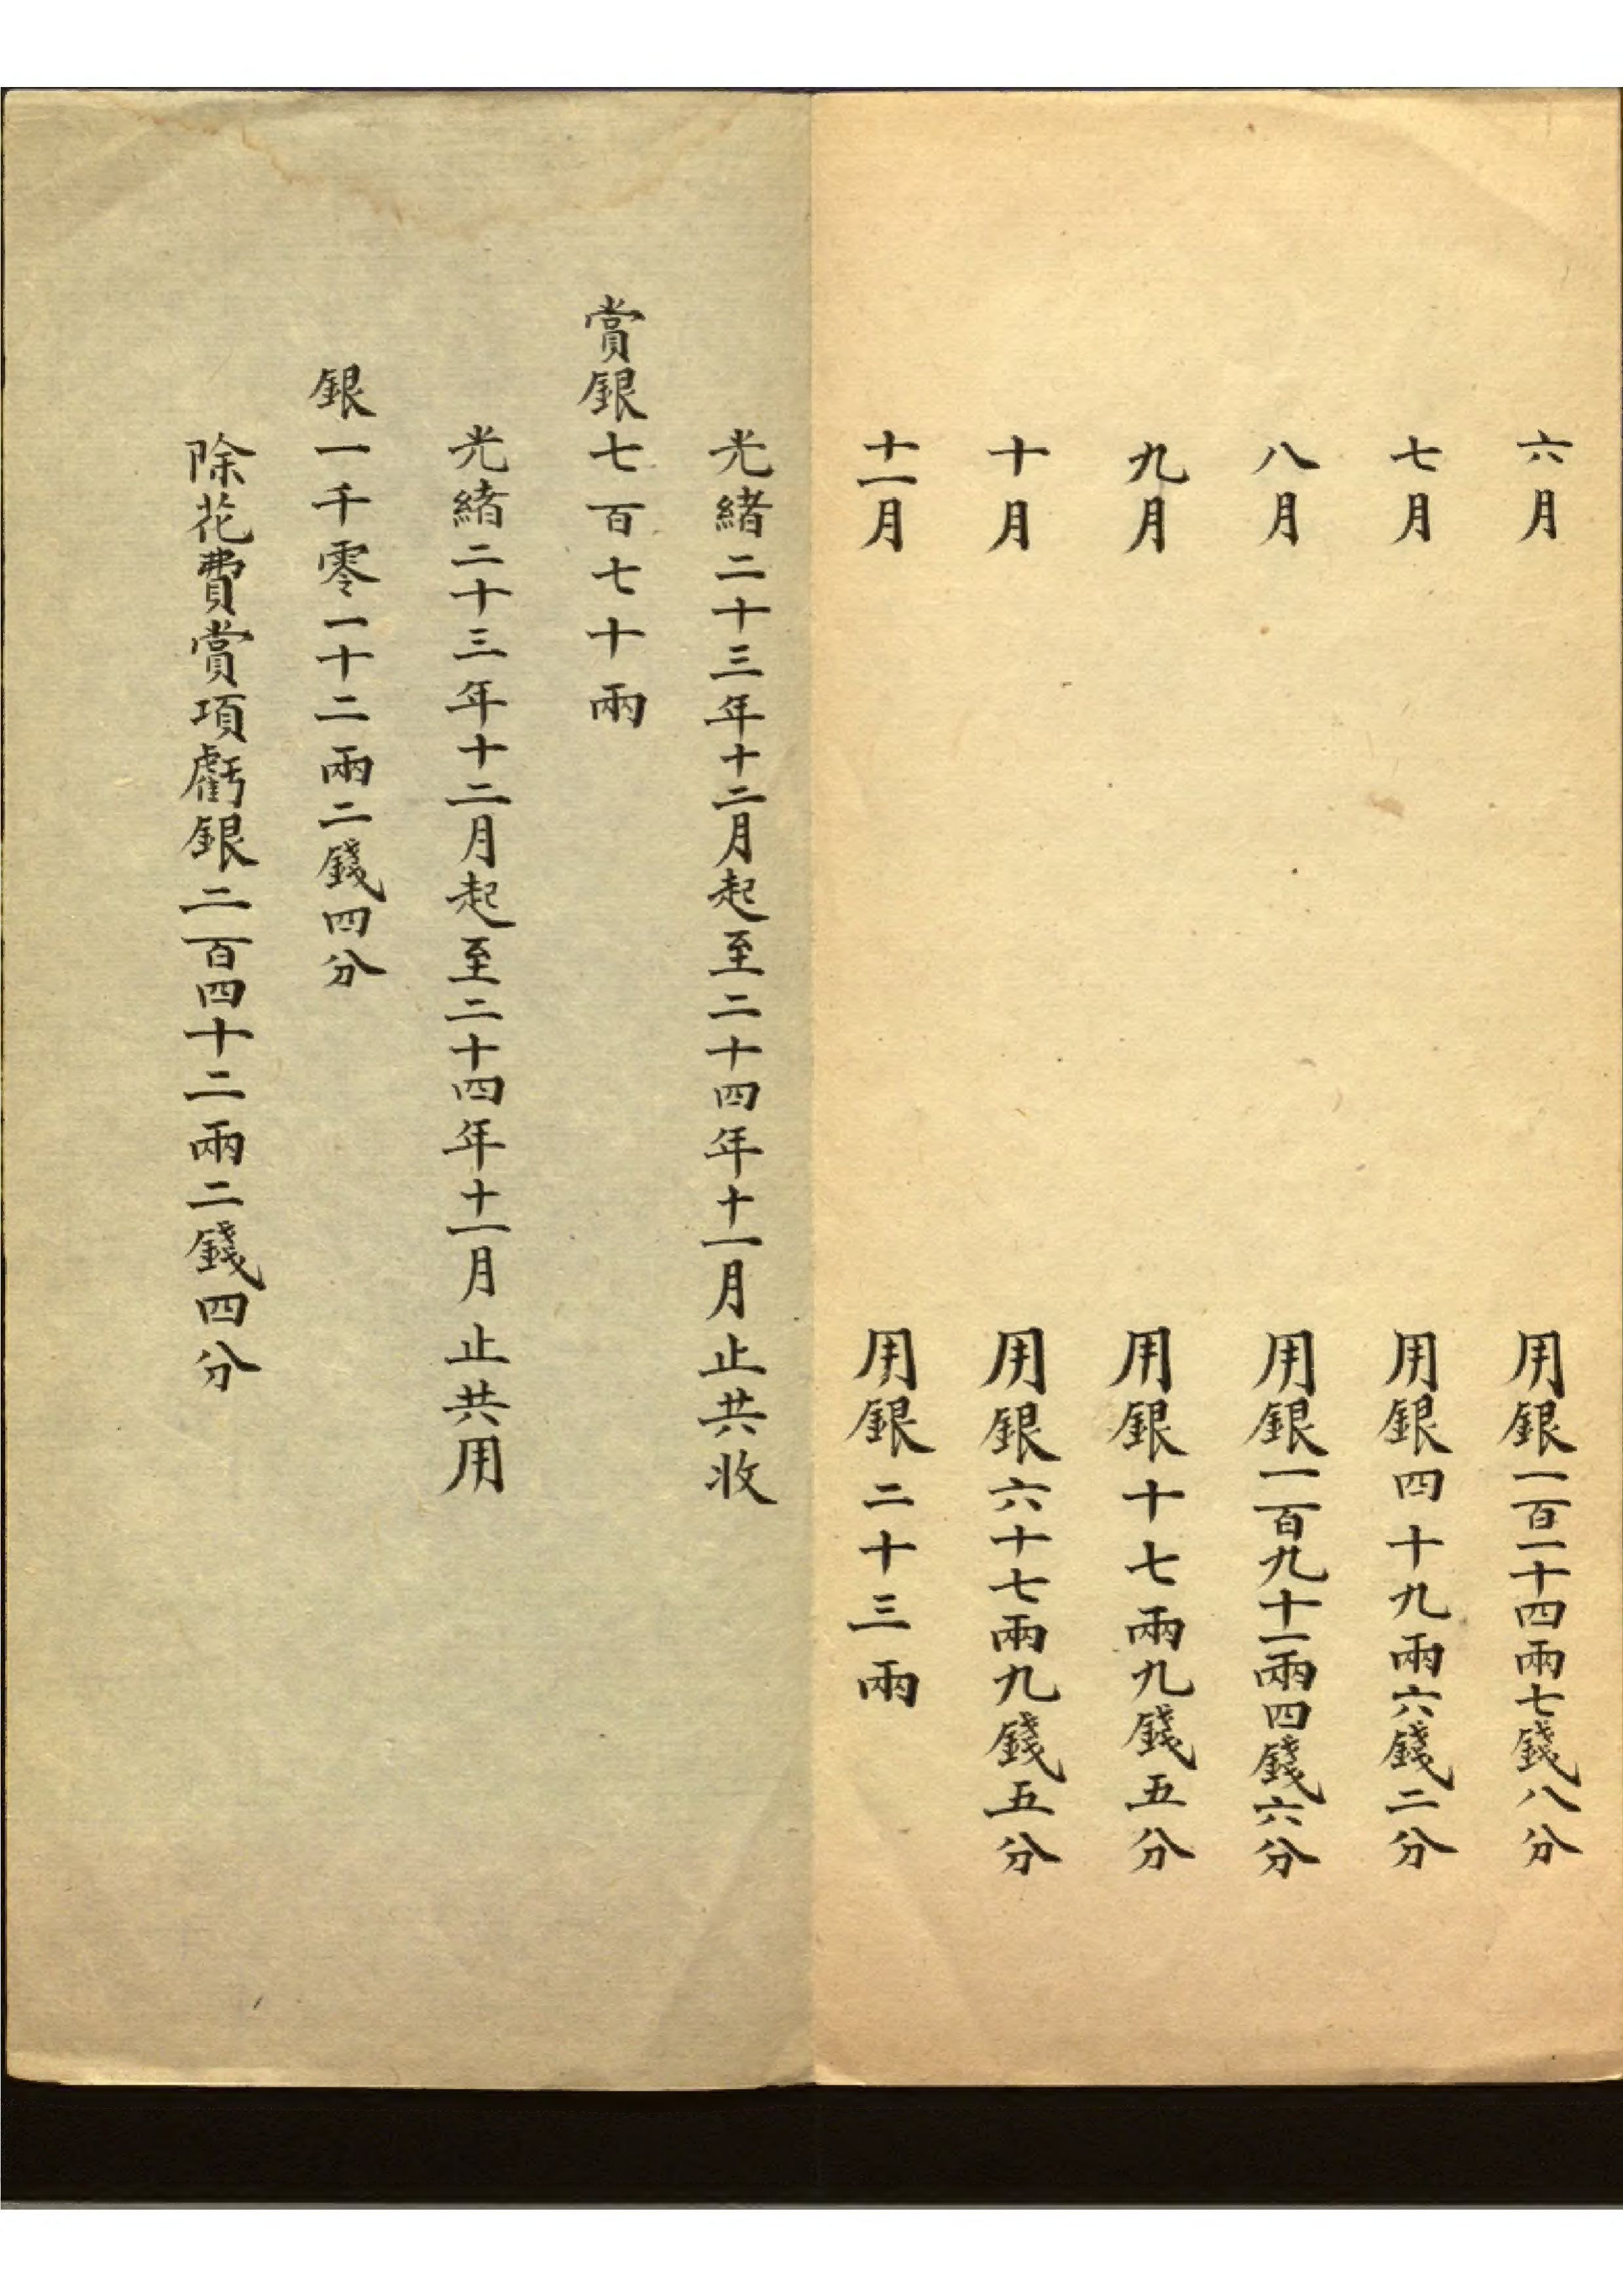 六月 用銀一百一十四兩七錢八分
七月 用銀四十九兩六錢二分
八月 用銀一百九十一兩四錢六分
九月 用銀十七兩九錢五分
十月 用銀六十七兩九錢五分
十一月 用銀二十三兩
光緒二十三年十二月起至二十四年十一月止共收
賞銀七百七十兩
光緒二十三年十二月起至二十四年十一月止共用
銀一千零一十二兩二錢四分
除花費賞項虧銀二百四十二兩二錢四分